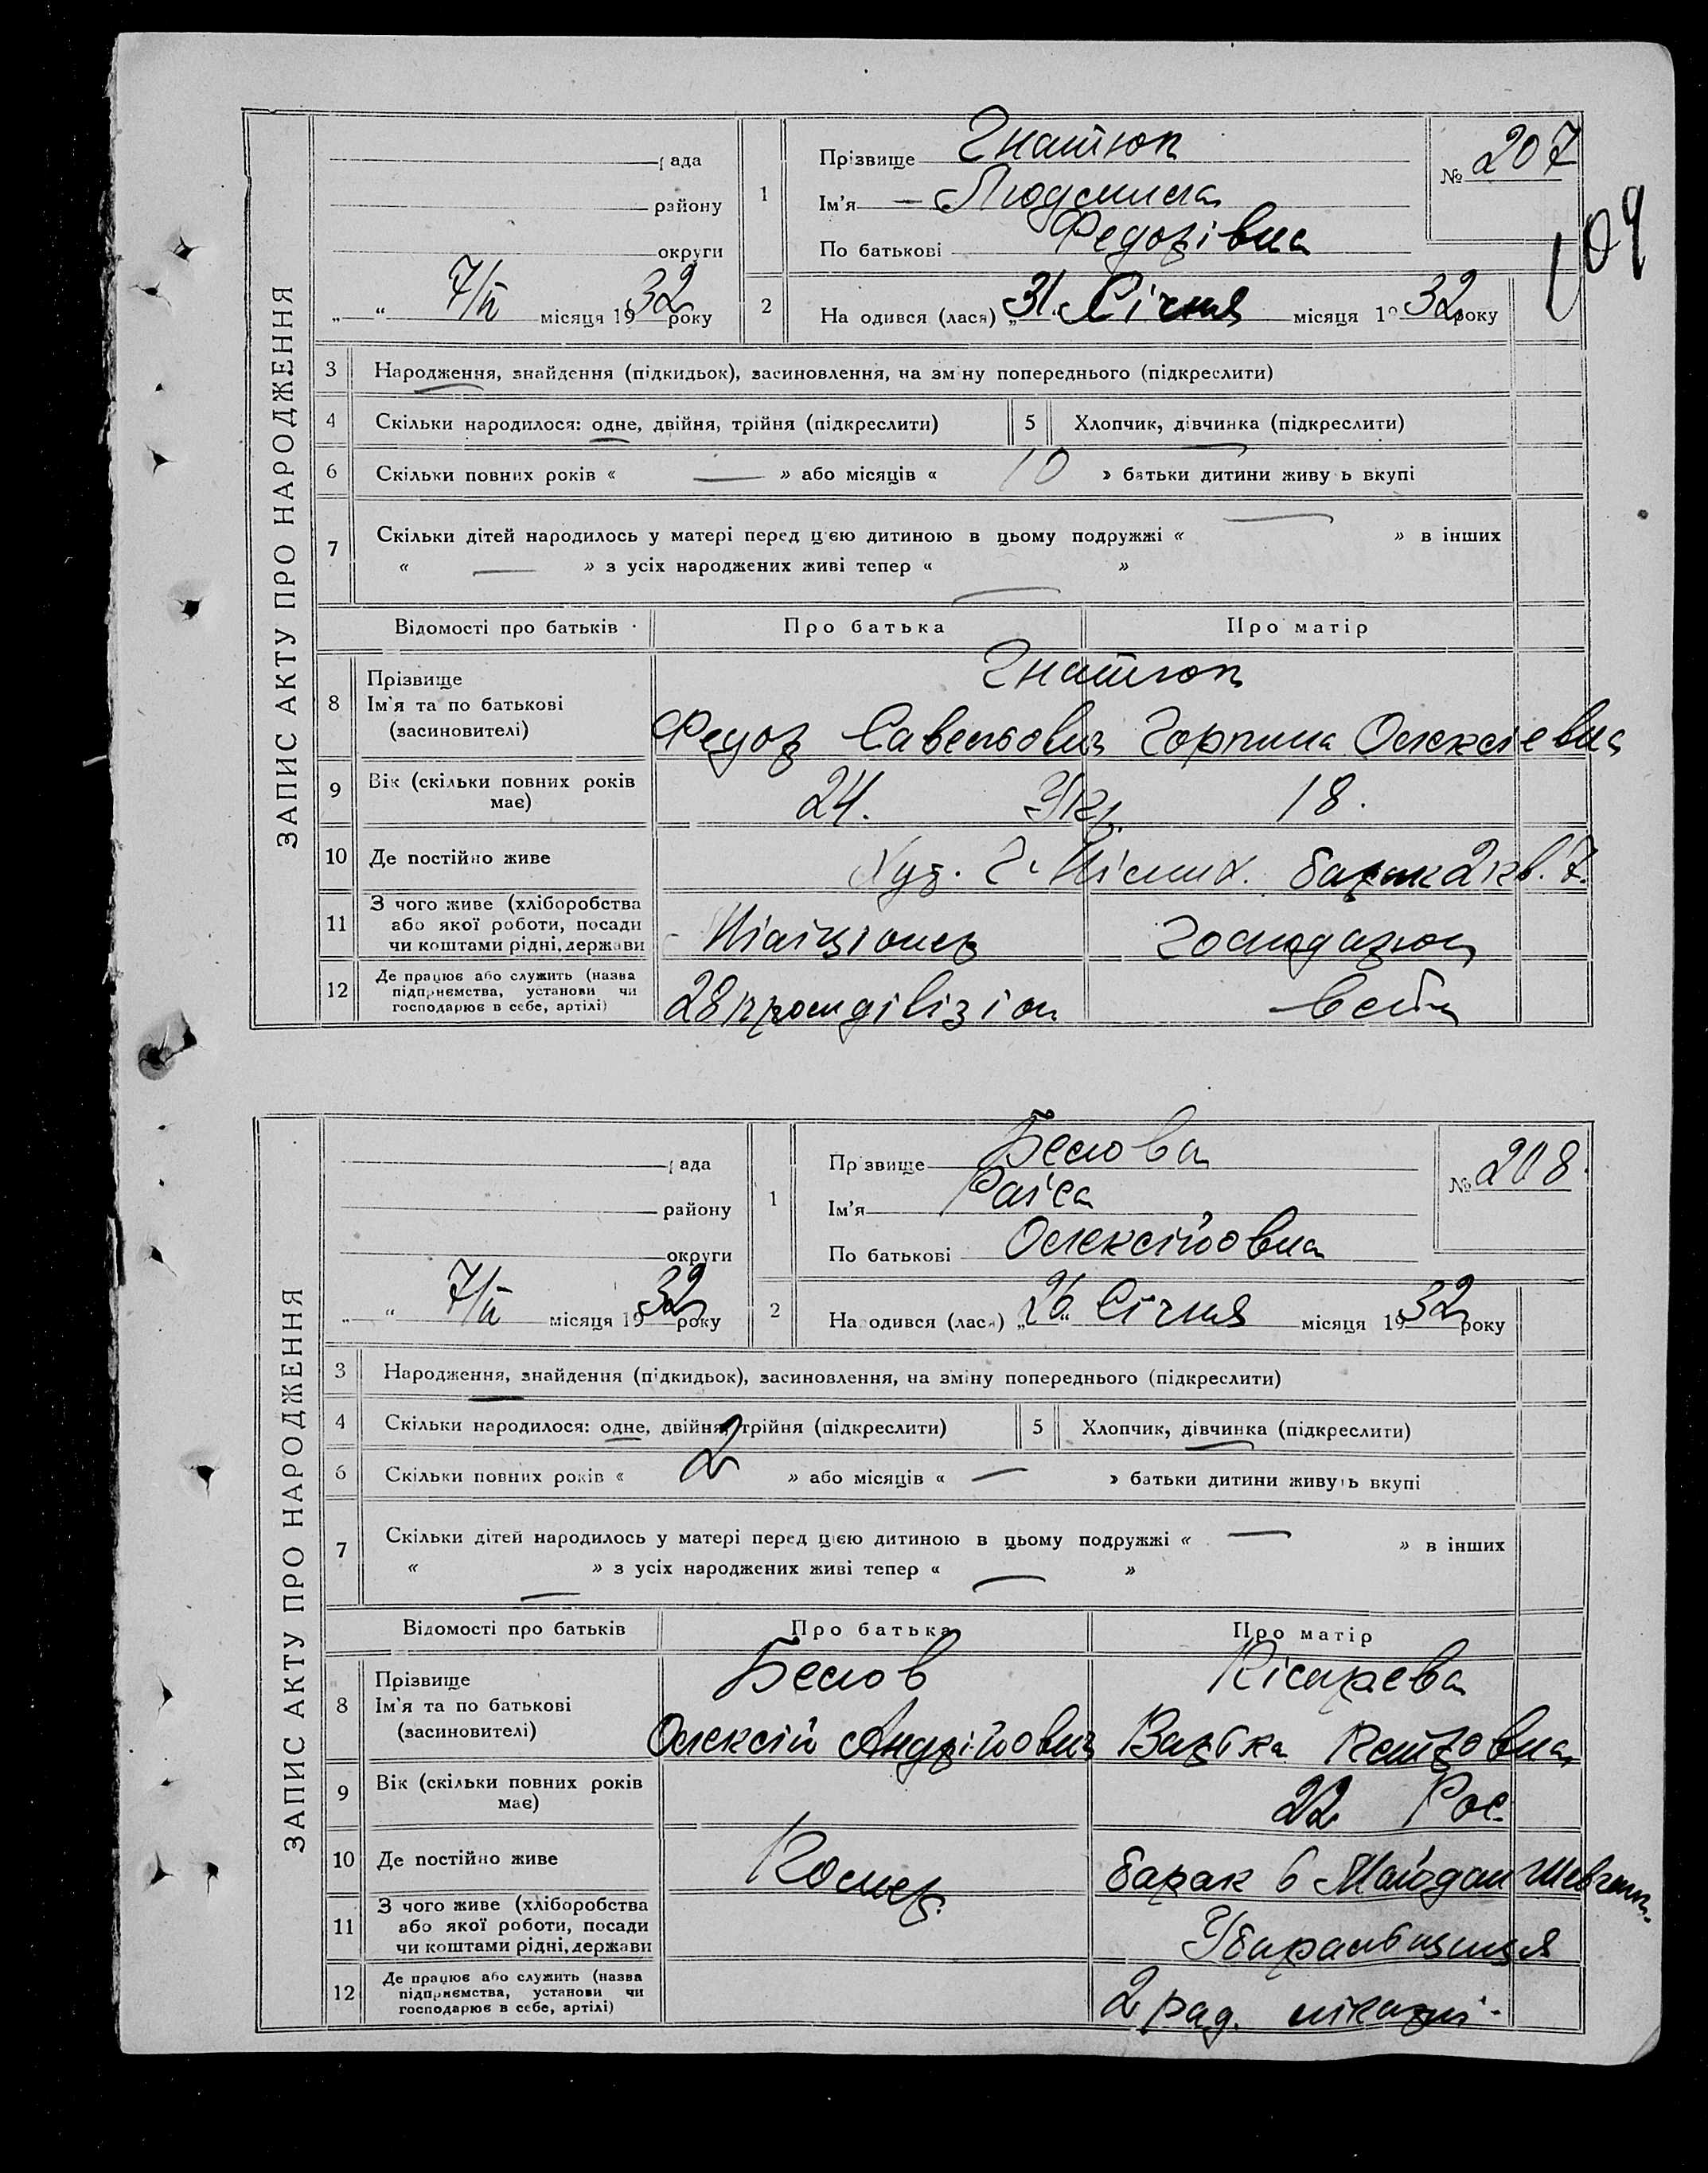 ЗАПИС АКТУ ПРО НАРОДЖЕННЯ
рада
району
округи
„ “ 7/II місяця 1932 року
1
Прізвище Гнатюк
Ім'я — Людмила
По батькові Федорівна
№ 207
109
2
Народився (лася) „31“ Січня місяця 1932 року
3 Народження, знайдення (підкидьок), засиновлення, на зміну попереднього (підкреслити)
4 Скільки народилося: одне, двійня, трійня (підкреслити) 5 Хлопчик, дівчинка (підкреслити)
6 Скільки повних років « — » або місяців « 10 » батьки дитини живуть вкупі
7 Скільки дітей народилось у матері перед цією дитиною в цьому подружжі « — » в інших
« — » з усіх народжених живі тепер « — »
Відомості про батьків Про батька Про матір
8 Прізвище
Ім'я та по батькові
(засиновителі)
Гнатюк
Федор Савельович Горпина Олексієвна
9 Вік (скільки повних років має)
24. Укр. 18.
10 Де постійно живе
Хут. барак 2 кв. 7.
11 З чого живе (хліборобства або якої роботи, посади чи коштами рідні, держави
Міліціонер Господарює
12 Де працює або служить (назва підприємства, установи чи господарює в себе, артілі)
28 промдівізіон в себе
ЗАПИС АКТУ ПРО НАРОДЖЕННЯ
рада
району
округи
„ “ 7/II місяця 1932 року
1
Прізвище Белова
Ім'я Раїса
По батькові Олексійовна
№ 208
2
Народився (лася) „26“ Січня місяця 1932 року
3 Народження, знайдення (підкидьок), засиновлення, на зміну попереднього (підкреслити)
4 Скільки народилося: одне, двійня, трійня (підкреслити) 5 Хлопчик, дівчинка (підкреслити)
6 Скільки повних років « 2 » або місяців « — » батьки дитини живуть вкупі
7 Скільки дітей народилось у матері перед цією дитиною в цьому подружжі « — » в інших
« — » з усіх народжених живі тепер « — »
Відомості про батьків Про батька Про матір
8 Прізвище
Ім'я та по батькові
(засиновителі)
Белов
Олексій Андрійович Петровна
9 Вік (скільки повних років має)
22 Рос.
10 Де постійно живе
Помер. барак 6 Майдан Шевченк.
11 З чого живе (хліборобства або якої роботи, посади чи коштами рідні, держави
Убиральщиця
12 Де працює або служить (назва підприємства, установи чи господарює в себе, артілі)
2 рад. лікарні